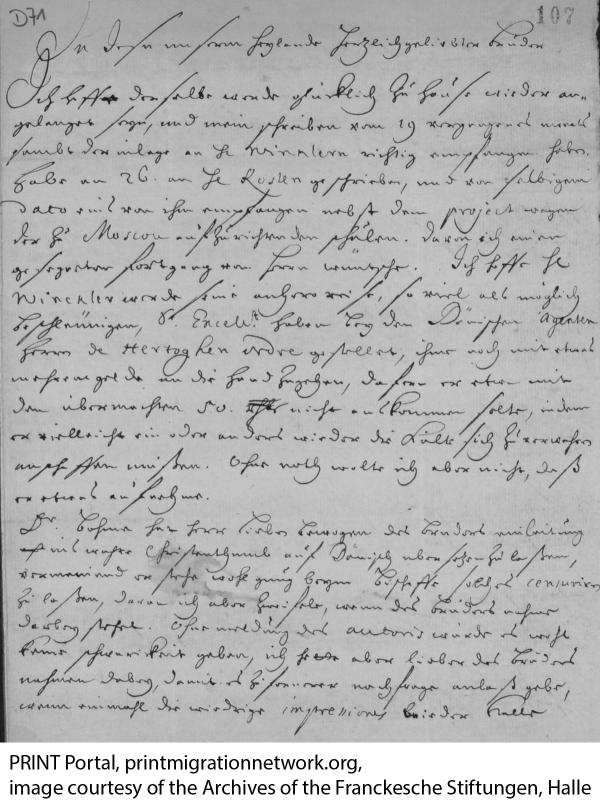 D71
107
In dem unserm Heylande Hertzlichgeliebter bruder
Ich hoffe derselbe werde glücklich zu hause wieder an-
gelanget seyn, und mein schreiben vom 19 vergangenes monats
sambt der inlage an H. Wincklern richtig empfangen haben.
habe am 26. an H. Rosten geschrieben, und von selbigem
dato eins von ihm empfangen nebst dem project wegen
der zu Moscou aufzurichtenden schulen. davon ich einen
gesegneten fortgang von Herrn wüntsche. Ich hoffe H.
Winckler werde seine anhero reise, so viel als möglich
beschleunigen, Sr. Excell. haben bey den Dänischen Agenten
Herrn de Hertoghen ordre gestellet, ihme noch mit etwas
mehrem gelde an die hand zugehen, dafern er etwa mit
den übermachten 50. nicht auskommen solte, indem
er vielleicht ein oder anders wieder die Kälte sich zu verwahren
anschaffen müssen. Ohne noth wolte ich aber nicht, daß
er etwas aufnehme.
Dr. Böhme hat Herr bewogen des bruders einleitung
ins wahre Christenthumb auf Dänisch übersetzen zu lassen,
vermeinend er stehe wohl gnug beym Bischoffe solches censuriren
zu lassen, daran ich aber zweifele, wenn des bruders nahme
darbey stehet. Ohne meldung des autoris würde es wohl
keine schwierikeit geben, ich hette aber lieber des bruders
nahmen dabey, damit es zu fernerer nachfrage anlaß gebe,
wenn einmahl die wiedrige impressiones wieder Halle
PRINT Portal, printmigrationnetwork.org,
image courtesy of the Archives of the Franckesche Stiftungen, Halle